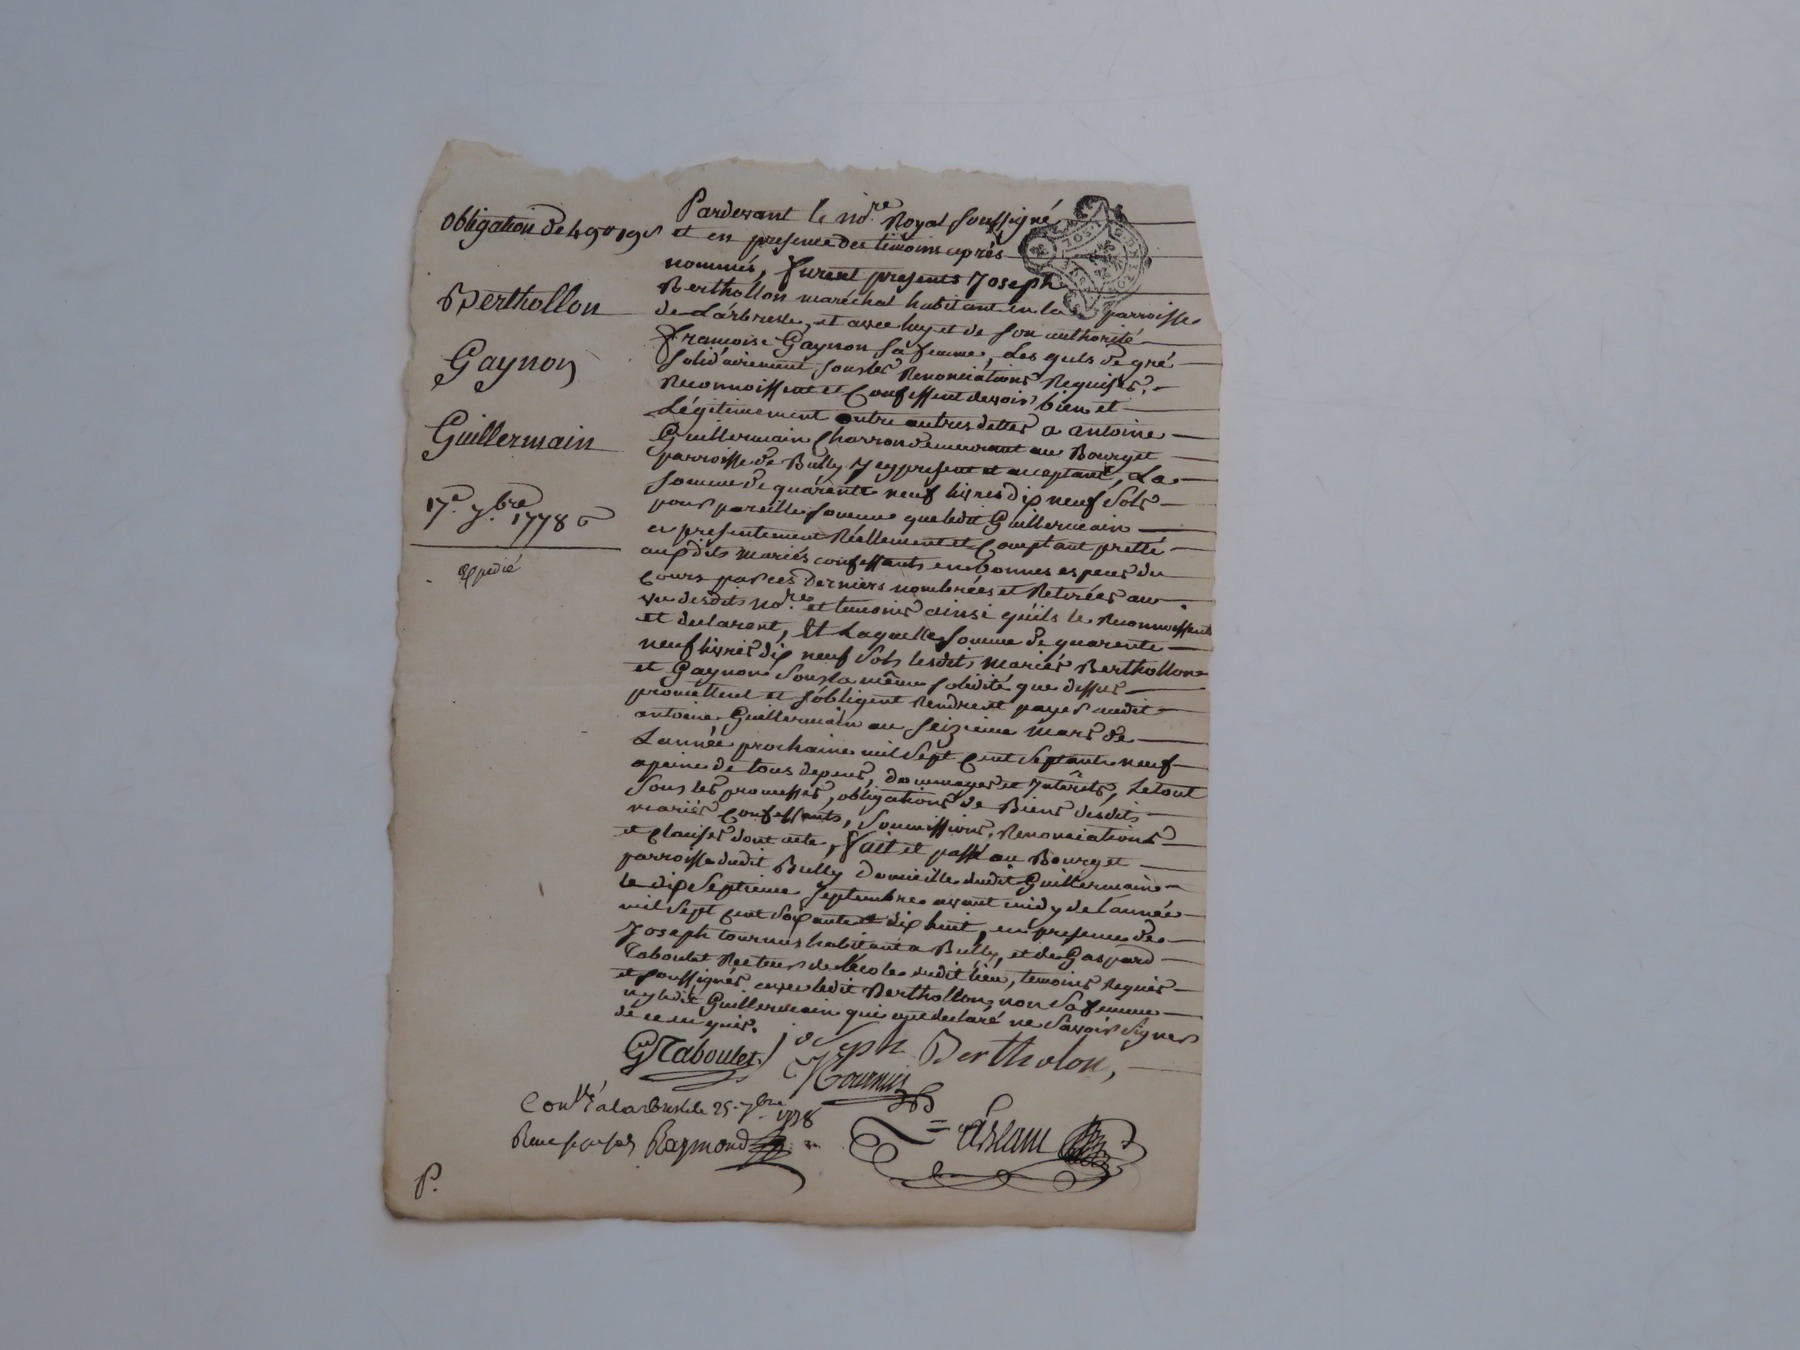 obligation de 49# 19s
Berthollon
Gaynon
Guillermain
17e 7bre 1778
Expedié
Pardevant le nore Royal soussigné
et en presence des temoins après
nommés, furent presents Joseph
Berthollon maréchal habitant en la parroisse
de Larbresle, et avec luy et de son authorité
françoise Gaynon sa femme, Les quels de gré
solidairement sous les Renonciations Requises
Reconnoissent et Confessent devoir bien et
Légitimement outre autres dettes a antoine
Guillermain Charron demeurant au Bourg et
parroisse de Bully Icy present et acceptant, La
somme de quarente neuf livres dix neuf sols
pour pareille somme que ledit Guillermain
a presentement Réellement et Comptant pretté
auxdits mariés confessants en bonnes especes du
Cours par ces derniers nombrées et Retirées au
vu desdits nore et temoins ainsi qu'ils le Reconnoissent
et declarent, Et Laquelle somme de quarente
neuf livres dix neuf sols lesdits mariés Berthollon
et Gaynon sous la même solidité que dessus
promettent et s'obligent Rendre et payer audit
antoine Guillermain au seizieme mars de
L'année prochaine mil sept cent septante neuf
a peine de tous depens, dommages et Interêts, Le tout
sous les promesses, obligations de Biens desdits
mariés Confessants, soumissions, Renonciations
et clauses dont acte, fait et passé au Bourg et
parroisse dudit Bully domicille dudit Guillermain
le dix septieme septembre avant midy de l'année
mil sept cent soixante et dix huit, en presence de
Joseph tournus habitant a Bully, et de Gaspard
Taboulet Recteur de l'école dudit lieu, temoins Requis
et soussignés avec ledit Berthollon, non sa femme
ny ledit Guillermain qui ont declaré ne savoir signer
de ce enquis.
G Taboulet Joseph Bertholon,
J Tournus
Conllé a larbresle le 25 7bre 1778
Raymond
P.